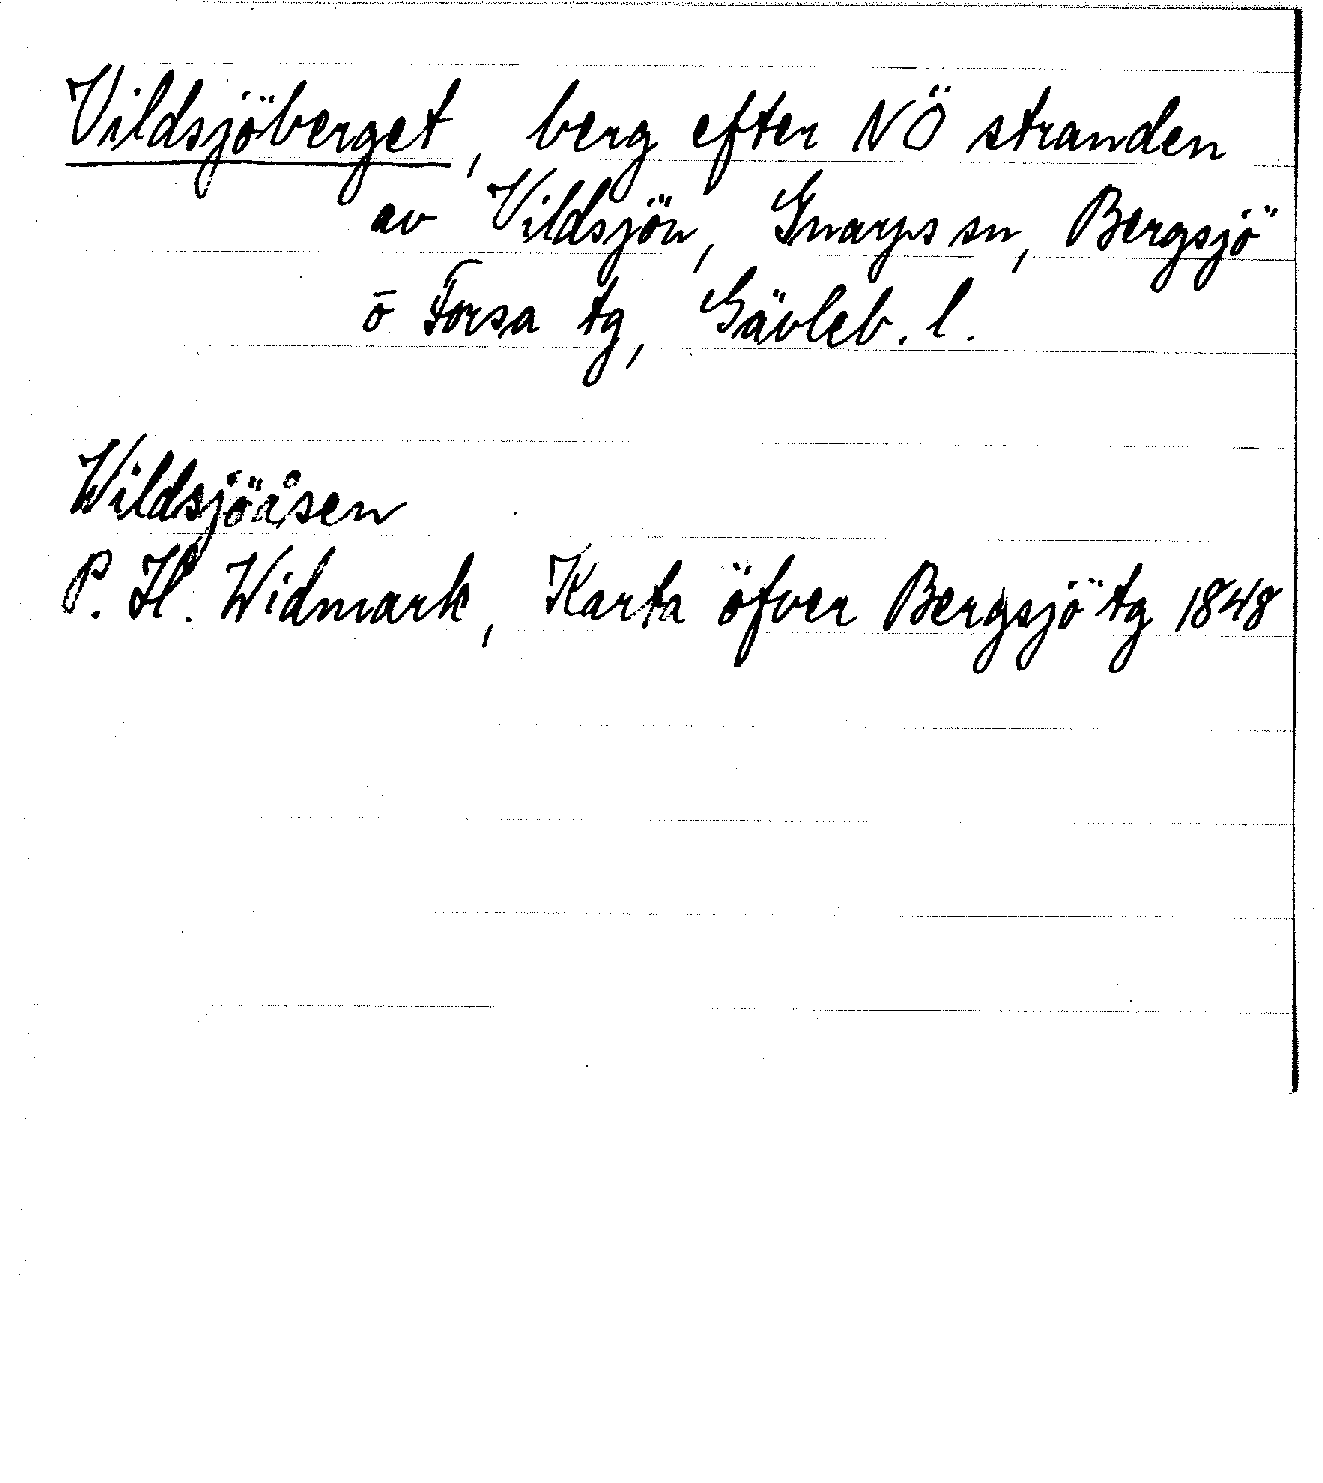 Vildsjöberget, berg efter NÖ stranden
av Vildsjön, Gnarps sn, Bergsjö
o Forsa tg, Gävleb. l.
Wildsjöåsen
P. H. Widmark, Karta öfver Bergsjö tg 1848